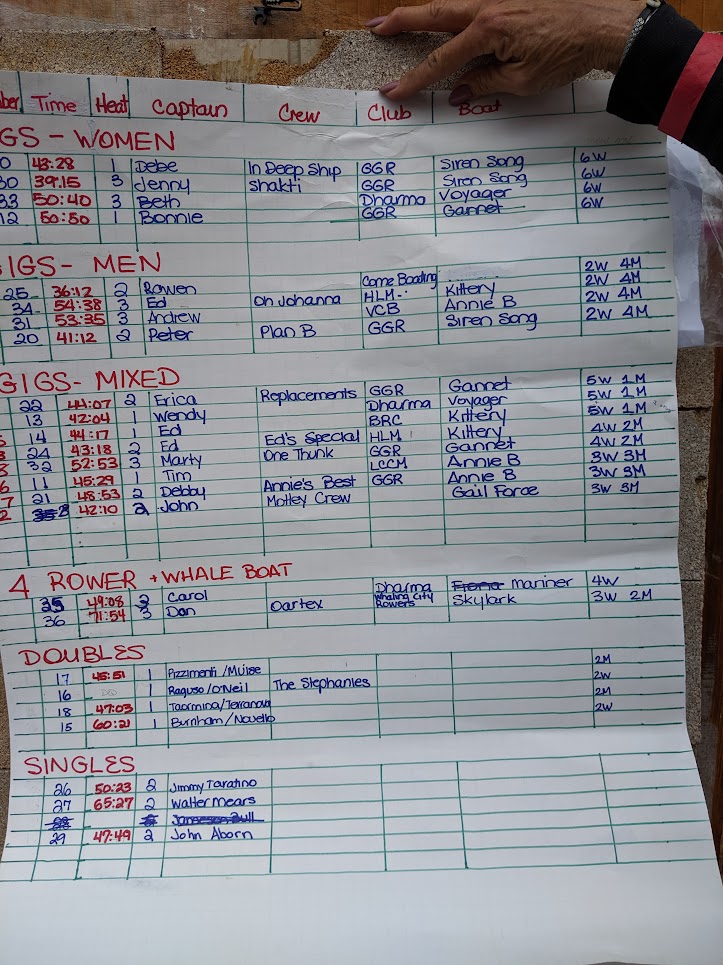 ber Time Heat Captain Crew Club Boat
GS - WOMEN
0 43:28 1 Debe In Deep Ship GGR Siren Song 6W
30 39:15 3 Jenny Shakti GGR Siren Song 6W
33 50:40 3 Beth Dharma Voyager 6W
12 50:50 1 Bonnie GGR Gannet 6W
IGS - MEN
25 36:12 2 Rowen Come Boating 2W 4M
34 54:38 3 Ed Oh Johanna HLM Kittery 2W 4M
31 53:35 3 Andrew VCB Annie B 2W 4M
20 41:12 2 Peter Plan B GGR Siren Song 2W 4M
GIGS - MIXED
22 44:07 2 Erica Replacements GGR Gannet 5W 1M
13 42:04 1 Wendy Dharma Voyager 5W 1M
14 44:17 1 Ed BRC Kittery 5W 1M
24 43:18 2 Ed Ed's Special HLM Kittery 4W 2M
32 52:53 3 Marty One Thunk GGR Gannet 4W 2M
6 11 45:29 1 Tim LCCM Annie B 3W 3M
7 21 48:53 2 Debby Annie's Best GGR Annie B 3W 3M
2 42:10 2 John Motley Crew Gail Force 3W 3M
4 ROWER + WHALE BOAT
35 49:08 Carol Dharma mariner 4W
36 71:54 3 Dan Oartex Whaling City Rowers Skylark 3W 2M
DOUBLES
17 45:51 1 Pizzimenti / Muise 2M
16 1 Raguso / O'Neil The Stephanies 2W
18 47:03 1 Taormina / Terranova 2M
15 60:21 1 Burnham / Novello 2W
SINGLES
26 50:23 2 Jimmy Taratino
27 65:27 2 Walter Mears
29 47:49 2 John Aborn